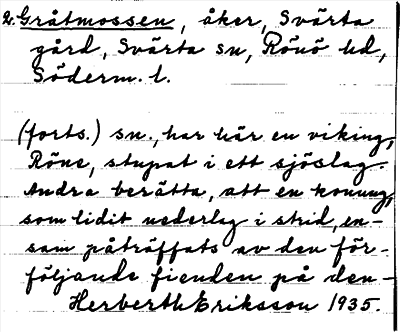 2. Gråtmossen, åker, Svärta
gård, Svärta sn, Rönö hd,
Söderm. l.
(forts.) sn., har här en viking,
Röne, stupat i ett sjöslag.
Andra berätta, att en konung,
som lidit nederlag i strid, en-
sam påträffats av den för-
följande fienden på den-
Herberth Eriksson 1935.